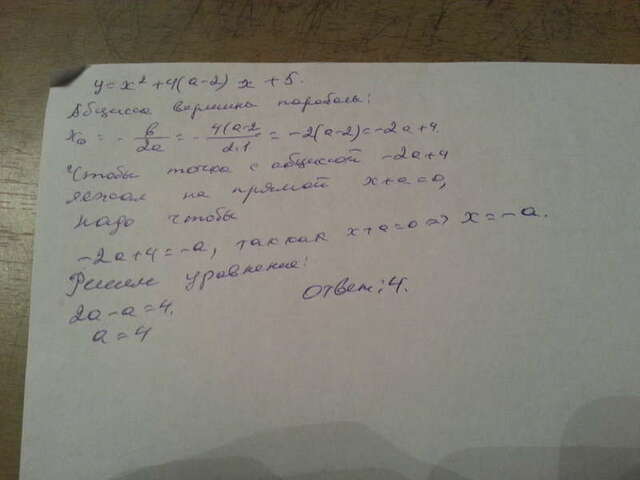 y = x² + 4(a-2) x + 5.
Абцисса вершина параболы:
x₀ = - b/2a = - 4(a-2/2·1 = -2(a-2) = -2a+4
Чтобы точка с абциссой -2a+4
лежал на прямой x+a=0,
надо чтобы
-2a+4=-a, так как x+a=0 => x=-a.
Решим уравнение:
2a-a=4.
Ответ: 4.
a=4